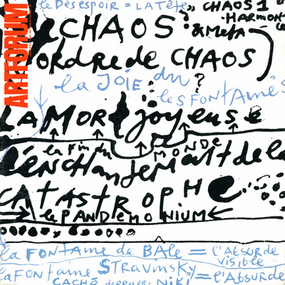 le Desespoir = LA Tête
CHAOS 1
CHAOS
& Meta
HARMON
ordre de CHAOS
ARTFORUM
la JOIE du
?
les FONTAINES
LA MORt joyeuse
la fin du MONDE
l'enchantement de la
CATASTROPHe
le PANDEMONIUM
la FONTAINE de BALe = l'Absurde
visible
la FONTAINE STRAVINSKy = l'Absurde
CACHÉ derriere NiKi